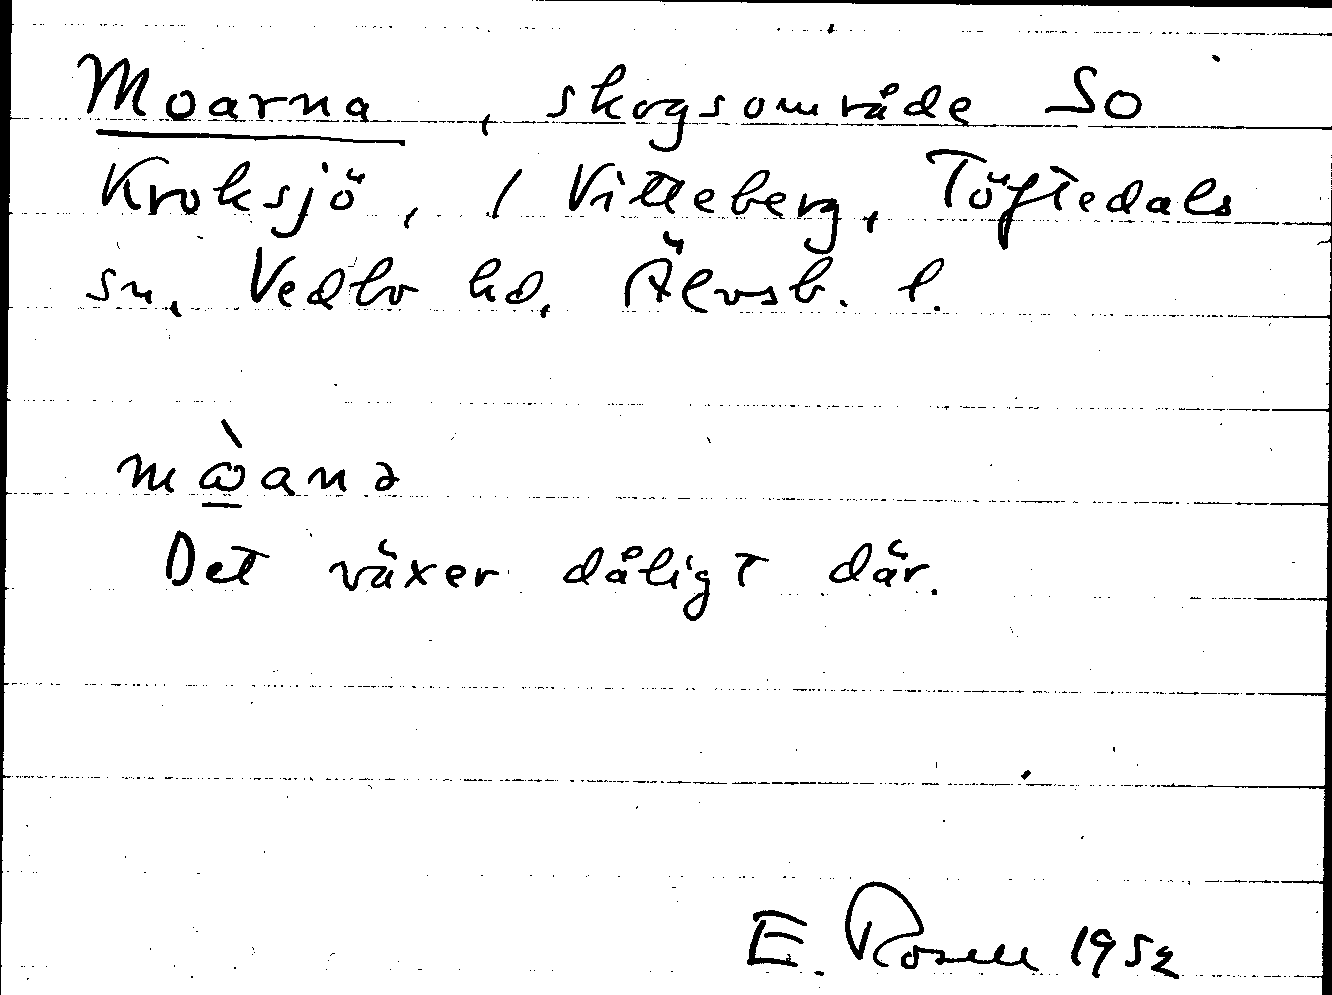 Moarna, skogsområde SO
Kroksjö, 1 Vitteberg, Töftedals
sn, Vedbo hd, Älvsb. l.
mὼ̲anə
Det växer dåligt där.
E. Rosell 1952